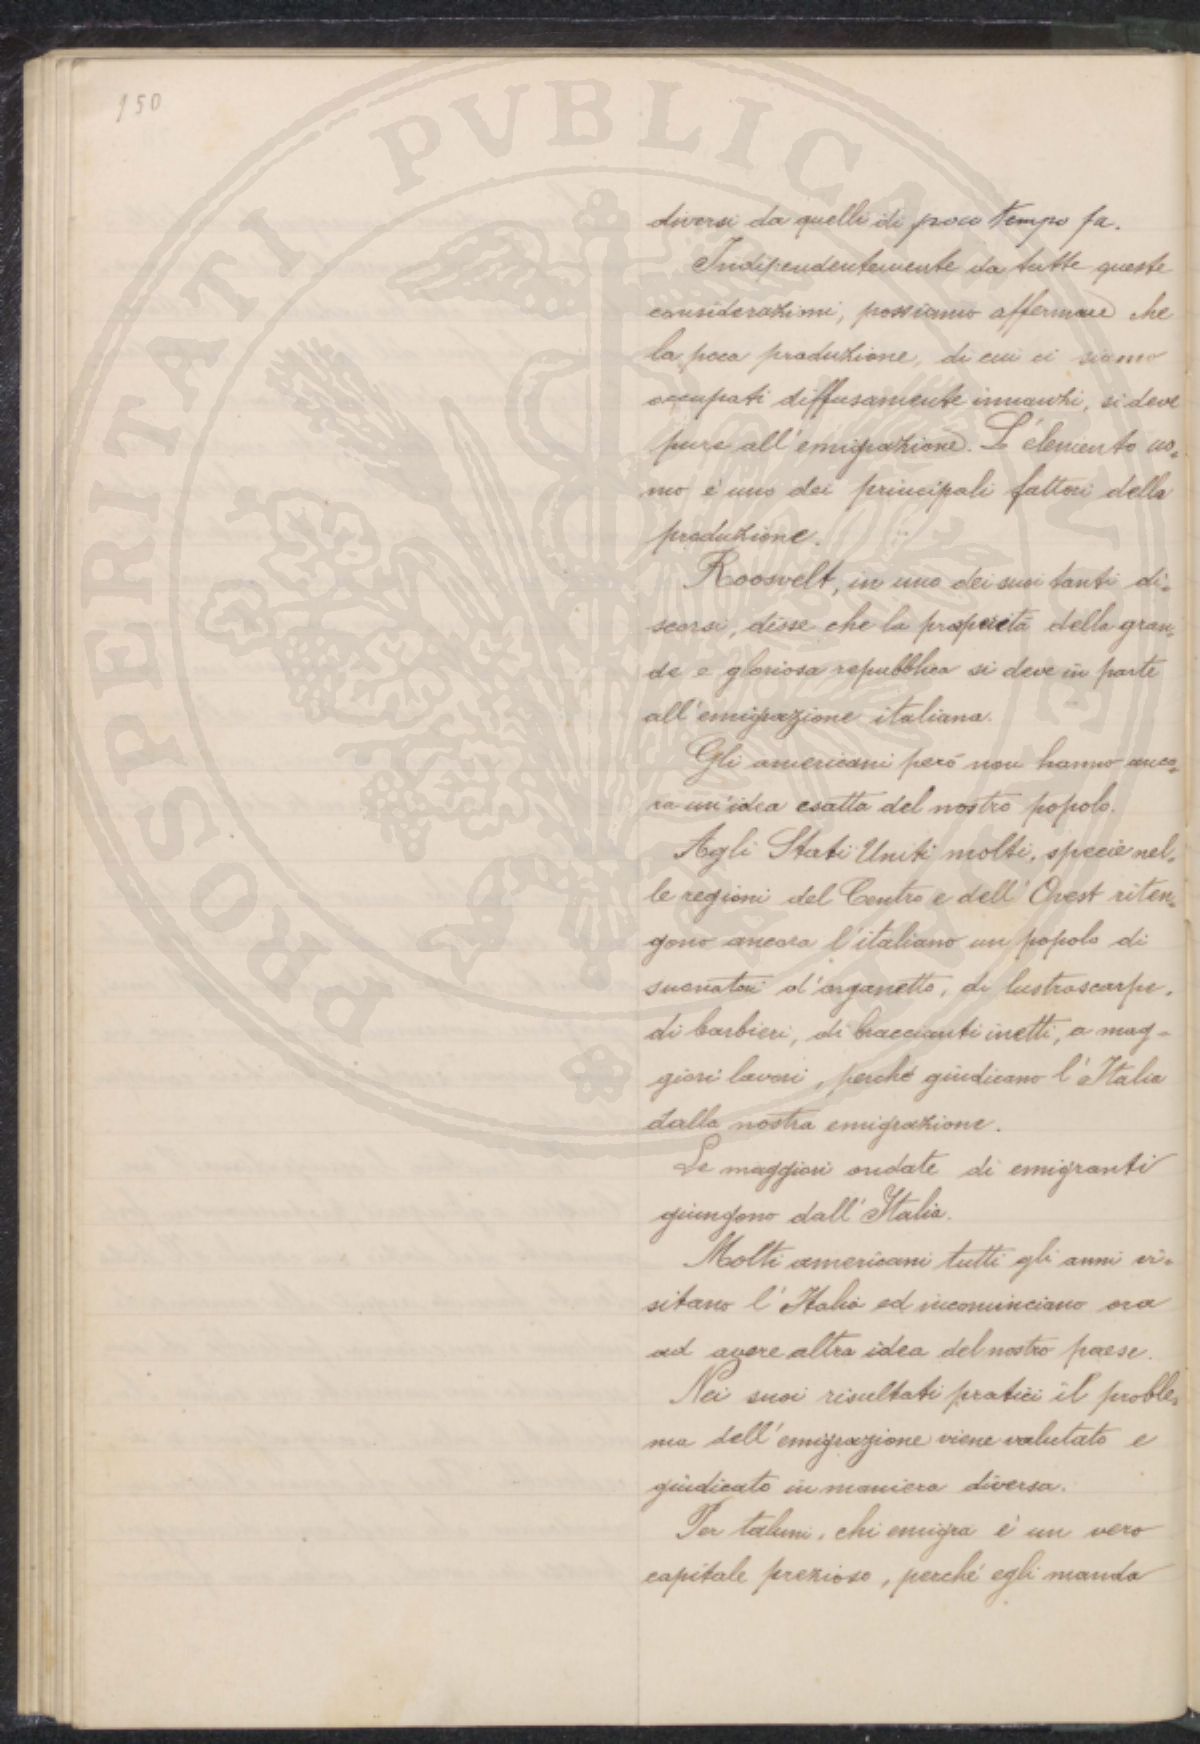 150
PROSPERITATI PVBLICAE AVGENDAE
diversi da quelli di poco tempo fa.
Indipendentemente da tutte queste
considerazioni, possiamo affermare che
la poca produzione, di cui ci siamo
occupati diffusamente innanzi, si deve
pure all'emigrazione. L'elemento uo-
mo è uno dei principali fattori della
produzione.
Roosvelt, in uno dei suoi tanti di-
scorsi, disse che la prosperità della gran-
de e gloriosa repubblica si deve in parte
all'emigrazione italiana.
Gli americani però non hanno anco-
ra un'idea esatta del nostro popolo.
Agli Stati Uniti molti, specie nel-
le regioni del Centro e dell'Ovest riten-
gono ancora l'italiano un popolo di
suonatori d'organetto, di lustroscarpe,
di barbieri, di braccianti inetti, a mag-
giori lavori, perché giudicano l'Italia
dalla nostra emigrazione.
Le maggiori ondate di emigranti
giungono dall'Italia.
Molti americani tutti gli anni vi-
sitano l'Italia ed incominciano ora
ad avere altra idea del nostro paese.
Nei suoi risultati pratici il proble-
ma dell'emigrazione viene valutato e
giudicato in maniera diversa.
Per taluni, chi emigra è un vero
capitale prezioso, perché egli manda